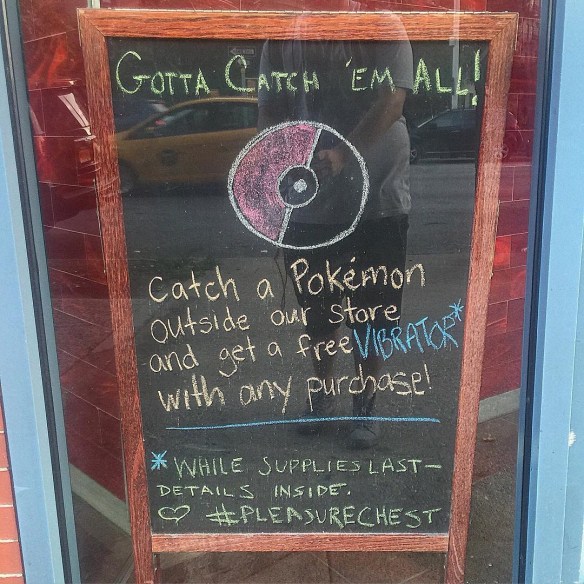 GOTTA CATCH 'EM ALL!
Catch a Pokémon
outside our store
and get a free VIBRATOR*
with any purchase!
* WHILE SUPPLIES LAST-
DETAILS INSIDE.
♡ #PLEASURECHEST